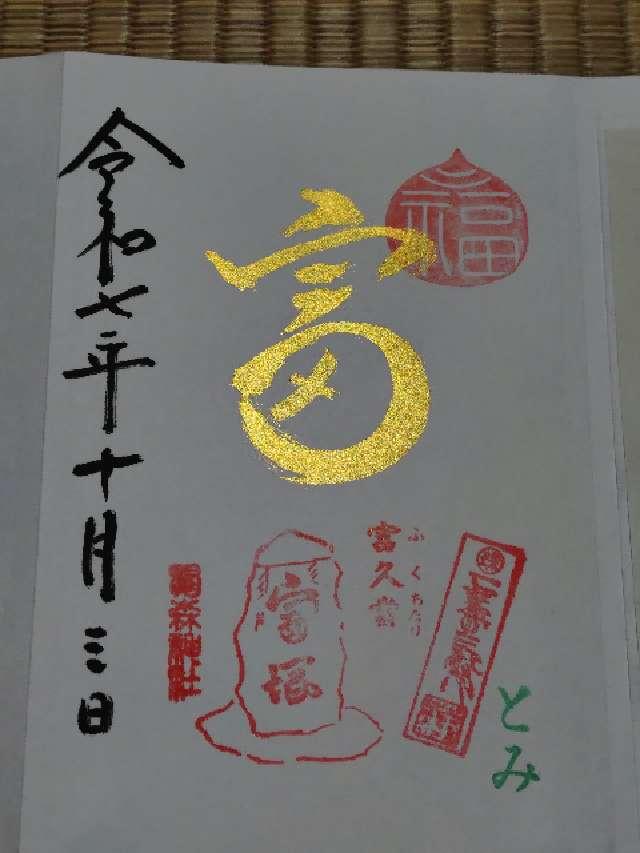 福
富
富久當
ふくあたり
富塚
椙森神社
とみ
令和七年十月三日